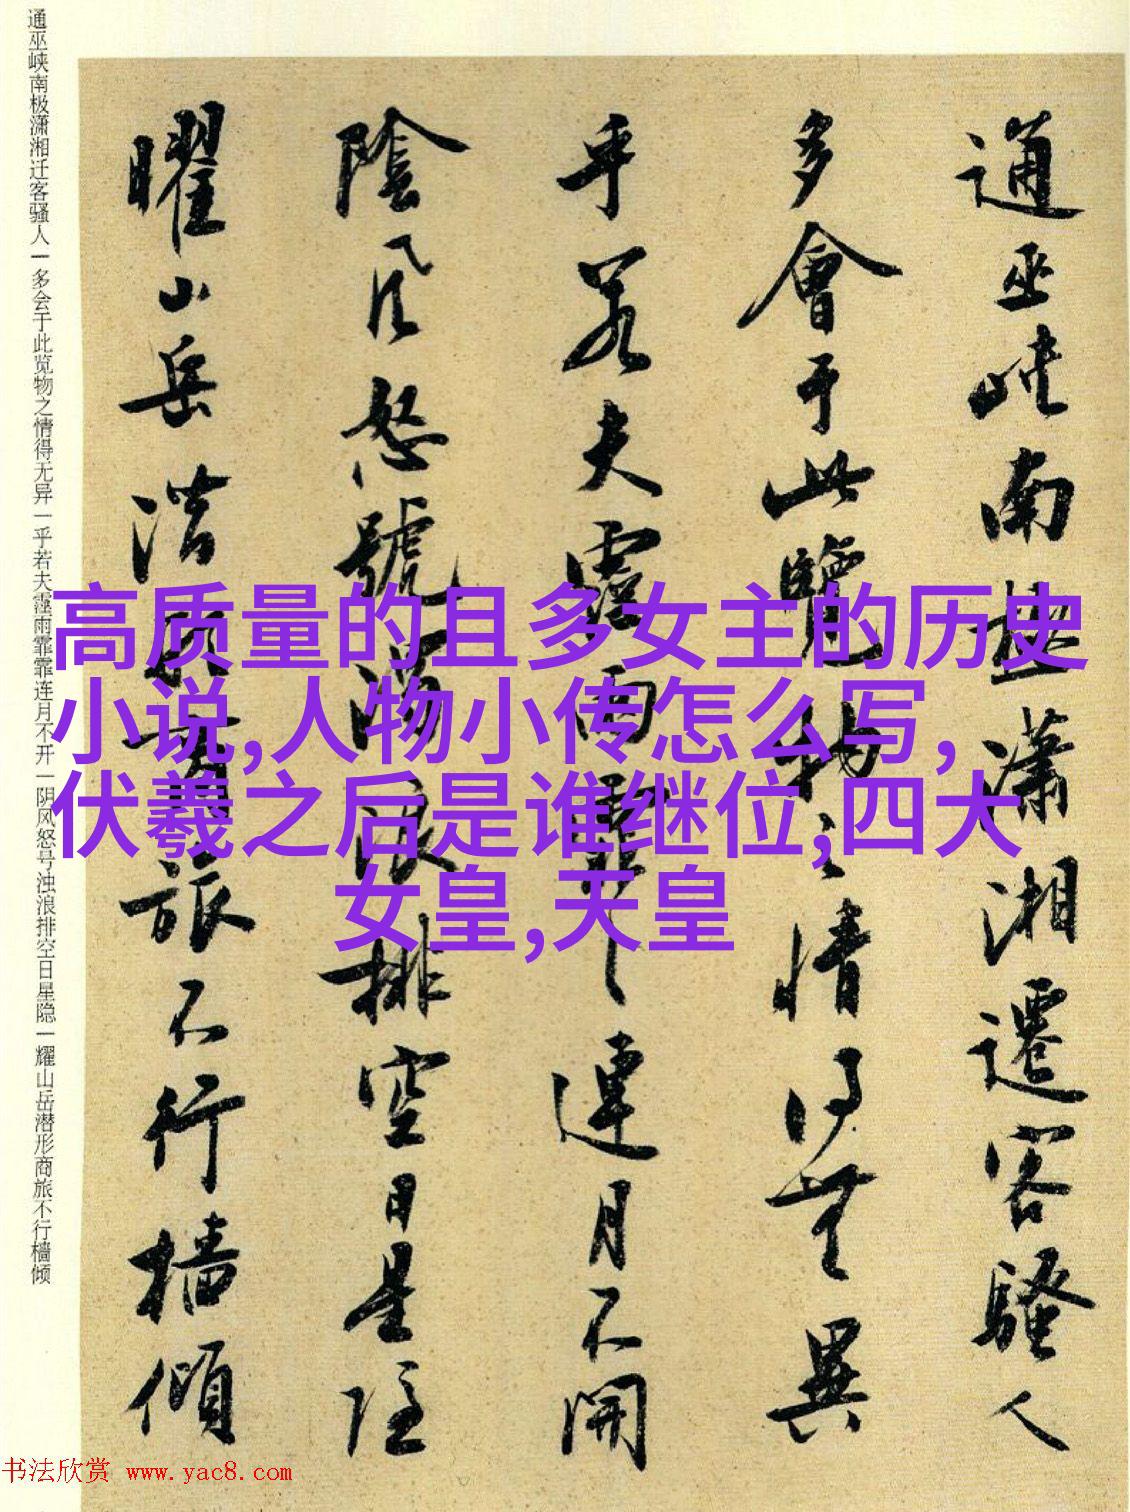 通巫峽南極瀟湘遷客騷人
多會于此覽物之情得無異
乎若夫霪雨霏〻連月不開
陰風怒號濁浪排空日星隱
曜山岳潛形商旅不行檣傾
通巫峡南极潇湘迁客骚人一多会于此览物之情得无异一乎若夫霪雨霏霏连月不开一阴风怒号浊浪排空日星隐一耀山岳潜形商旅不行樯倾
高质量的且多女主的历史
小说,人物小传怎么写,
伏羲之后是谁继位,四大
女皇,天皇
书法欣赏 www.yac8.com